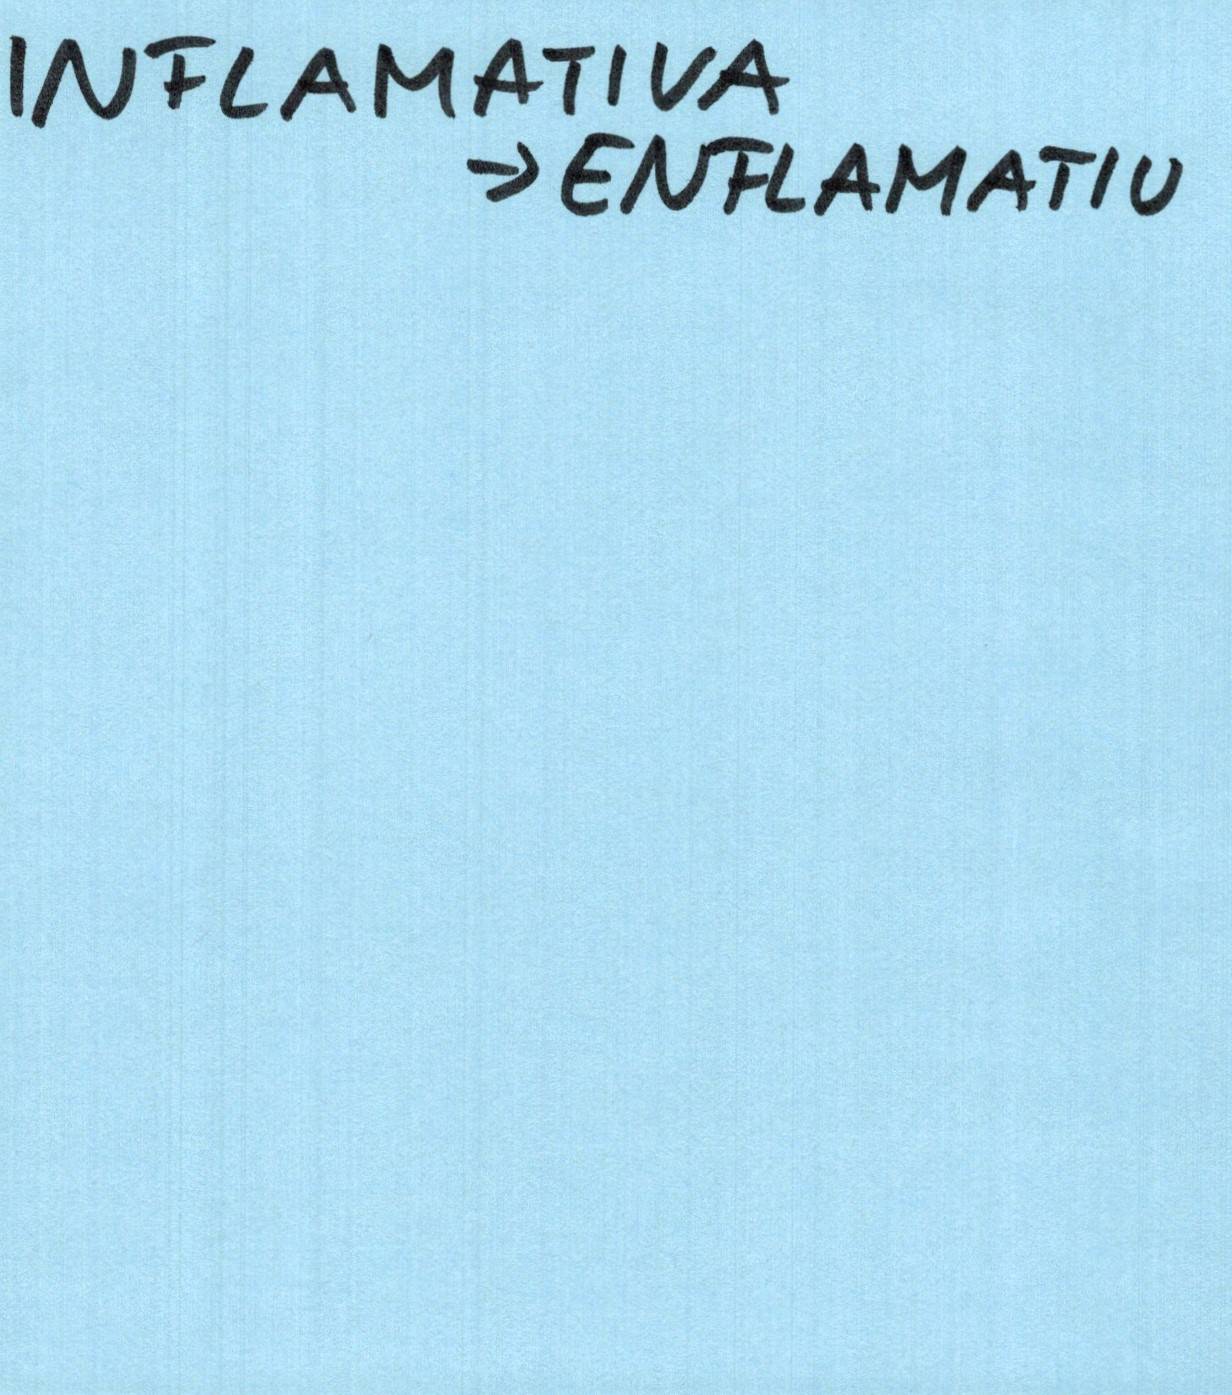 INFLAMATIVA
→ ENFLAMATIU